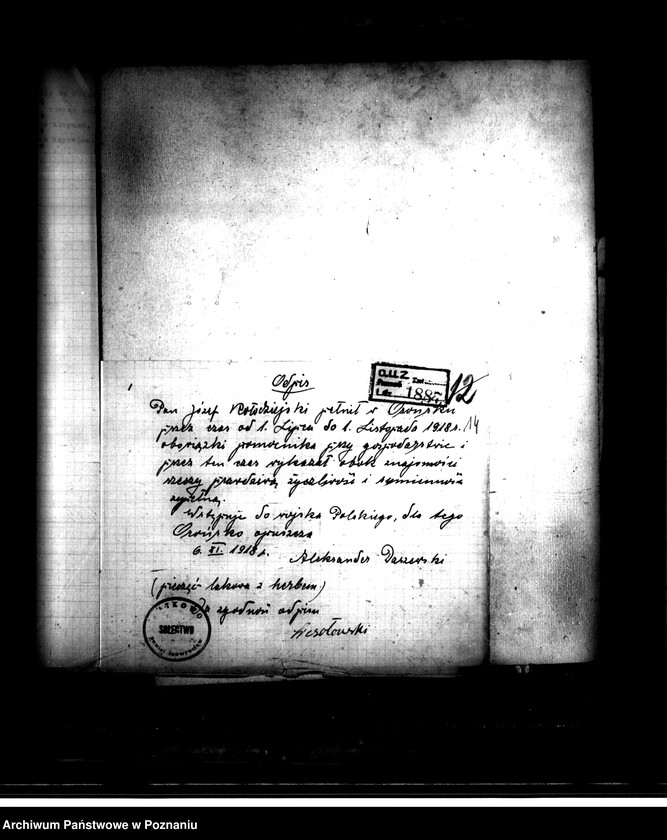 O.U.Z
Poznań
L.dz. 1887
12
14
Odpis
Pan Józef Kołodziejski pełnił w Orońsku
przez czas od 1. Lipca do 1. Listopada 1918 r.
obowiązki pomocnika przy gospodarstwie i
przez ten czas wykazał obok znajomości
rzeczy prawdziwą życzliwość i sumienność
zupełną.
Wstępuje do wojska Polskiego, dla tego
Orońsko opuszcza
6. XI. 1918 r.
Aleksander Daszewski
(pieczęć lakowa z herbem)
Za zgodność odpisu
Wesołowski
SOŁECTWO
Archiwum Państwowe w Poznaniu